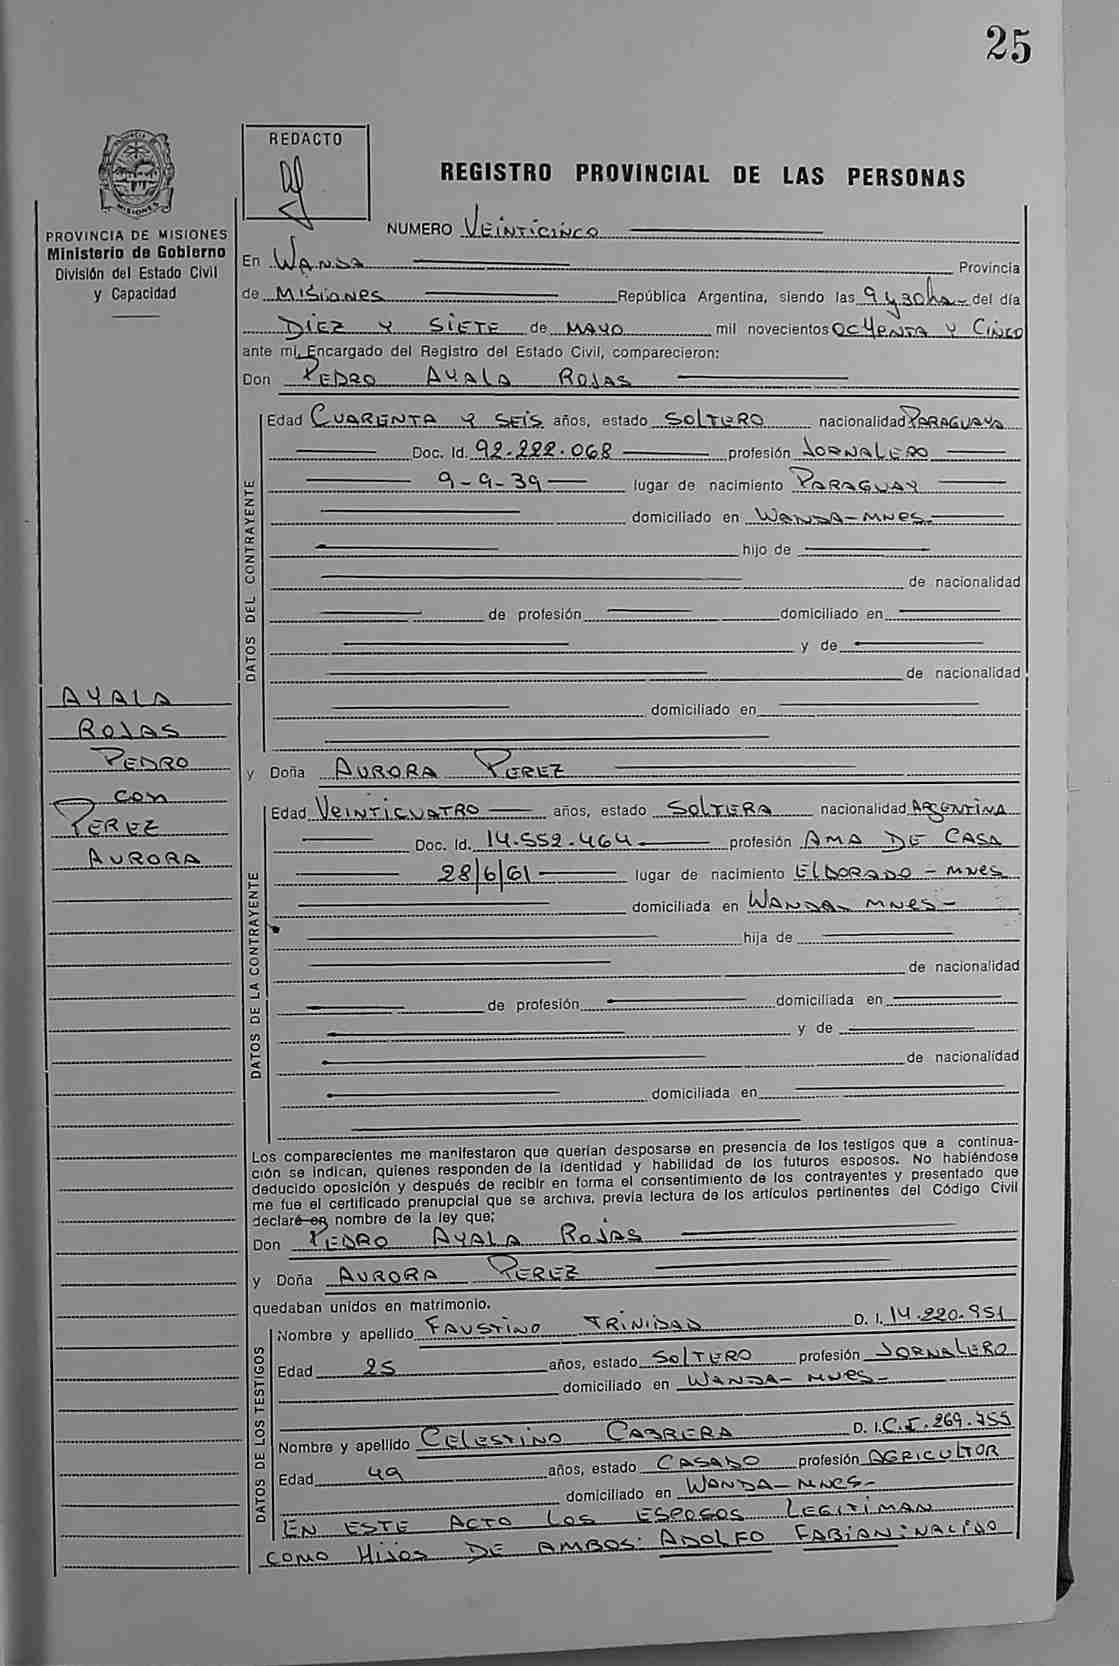 25
REDACTO
REGISTRO PROVINCIAL DE LAS PERSONAS
PROVINCIA DE MISIONES
Ministerio de Gobierno
División del Estado Civil
y Capacidad
NUMERO VEINTICINCO
En WANDA Provincia
de MISIONES República Argentina, siendo las 9 y 30 hs del día
DIEZ Y SIETE de MAYO mil novecientos OCHENTA Y CINCO
ante mi, Encargado del Registro del Estado Civil, comparecieron:
Don PEDRO AYALA ROJAS
DATOS DEL CONTRAYENTE
Edad CUARENTA Y SEIS años, estado SOLTERO nacionalidad PARAGUAYA
Doc. Id. 92.222.068 profesión JORNALERO
9-9-39 lugar de nacimiento PARAGUAY
domiciliado en WANDA-MNES
hijo de
de nacionalidad
de profesión domiciliado en
y de
de nacionalidad
domiciliado en
AYALA
ROJAS
PEDRO
CON
PEREZ
AURORA
y Doña AURORA PEREZ
DATOS DE LA CONTRAYENTE
Edad VEINTICUATRO años, estado SOLTERA nacionalidad ARGENTINA
Doc. Id. 14.552.464 profesión AMA DE CASA
28/6/61 lugar de nacimiento ELDORADO - MNES
domiciliada en WANDA- MNES-
hija de
de nacionalidad
de profesión domiciliada en
y de
de nacionalidad
domiciliada en
Los comparecientes me manifestaron que querían desposarse en presencia de los testigos que a continua-
ción se indican, quienes responden de la identidad y habilidad de los futuros esposos. No habiéndose
deducido oposición y después de recibir en forma el consentimiento de los contrayentes y presentado que
me fue el certificado prenupcial que se archiva, previa lectura de los artículos pertinentes del Código Civil
declaré en nombre de la ley que:
Don PEDRO AYALA ROJAS
y Doña AURORA PEREZ
quedaban unidos en matrimonio.
DATOS DE LOS TESTIGOS
Nombre y apellido FAUSTINO TRINIDAD D. I. 14.220.951
Edad 25 años, estado SOLTERO profesión JORNALERO
domiciliado en WANDA- MNES-
Nombre y apellido CELESTINO CABRERA D. I. C.I. 269.755
Edad 49 años, estado CASADO profesión AGRICULTOR
domiciliado en WANDA- MNES-
EN ESTE ACTO LOS ESPOSOS LEGITIMAN
COMO HIJOS DE AMBOS: ADOLFO FABIAN: NACIDO